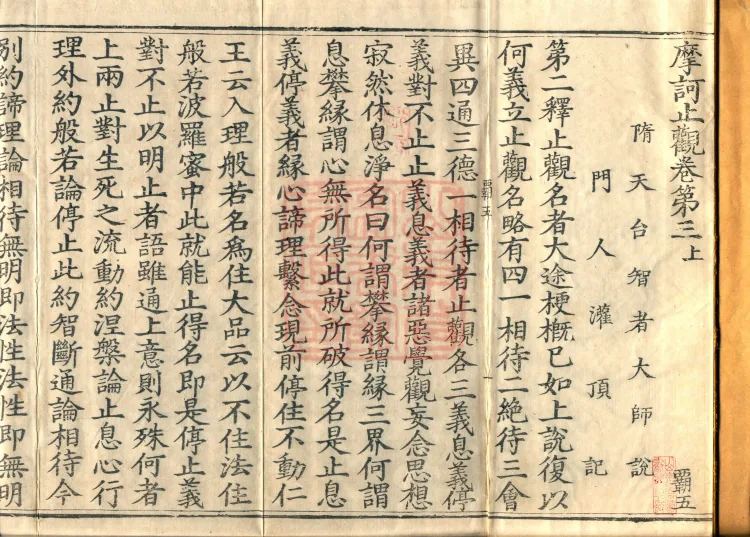 摩訶止觀卷第三上
霸五
隋天台智者大師說
門人灌頂記
第二釋止觀名者大途梗槪已如上說復以
何義立止觀名略有四一相待二絕待三會
霸五
異四通三德一相待者止觀各三義息義停
義對不止止義息義者諸惡覺觀妄念思想
寂然休息淨名曰何謂攀緣謂緣三界何謂
息攀緣謂心無所得此就所破得名是止息
義停義者緣心諦理繫念現前停住不動仁
王云入理般若名爲住大品云以不住法住
般若波羅蜜中此就能止得名即是停止義
對不止以明止者語雖通上意則永殊何者
上兩止對生死之流動約涅槃論止息心行
理外約般若論停止此約智斷通論相待今
別約諦理論相待無明即法性法性即無明